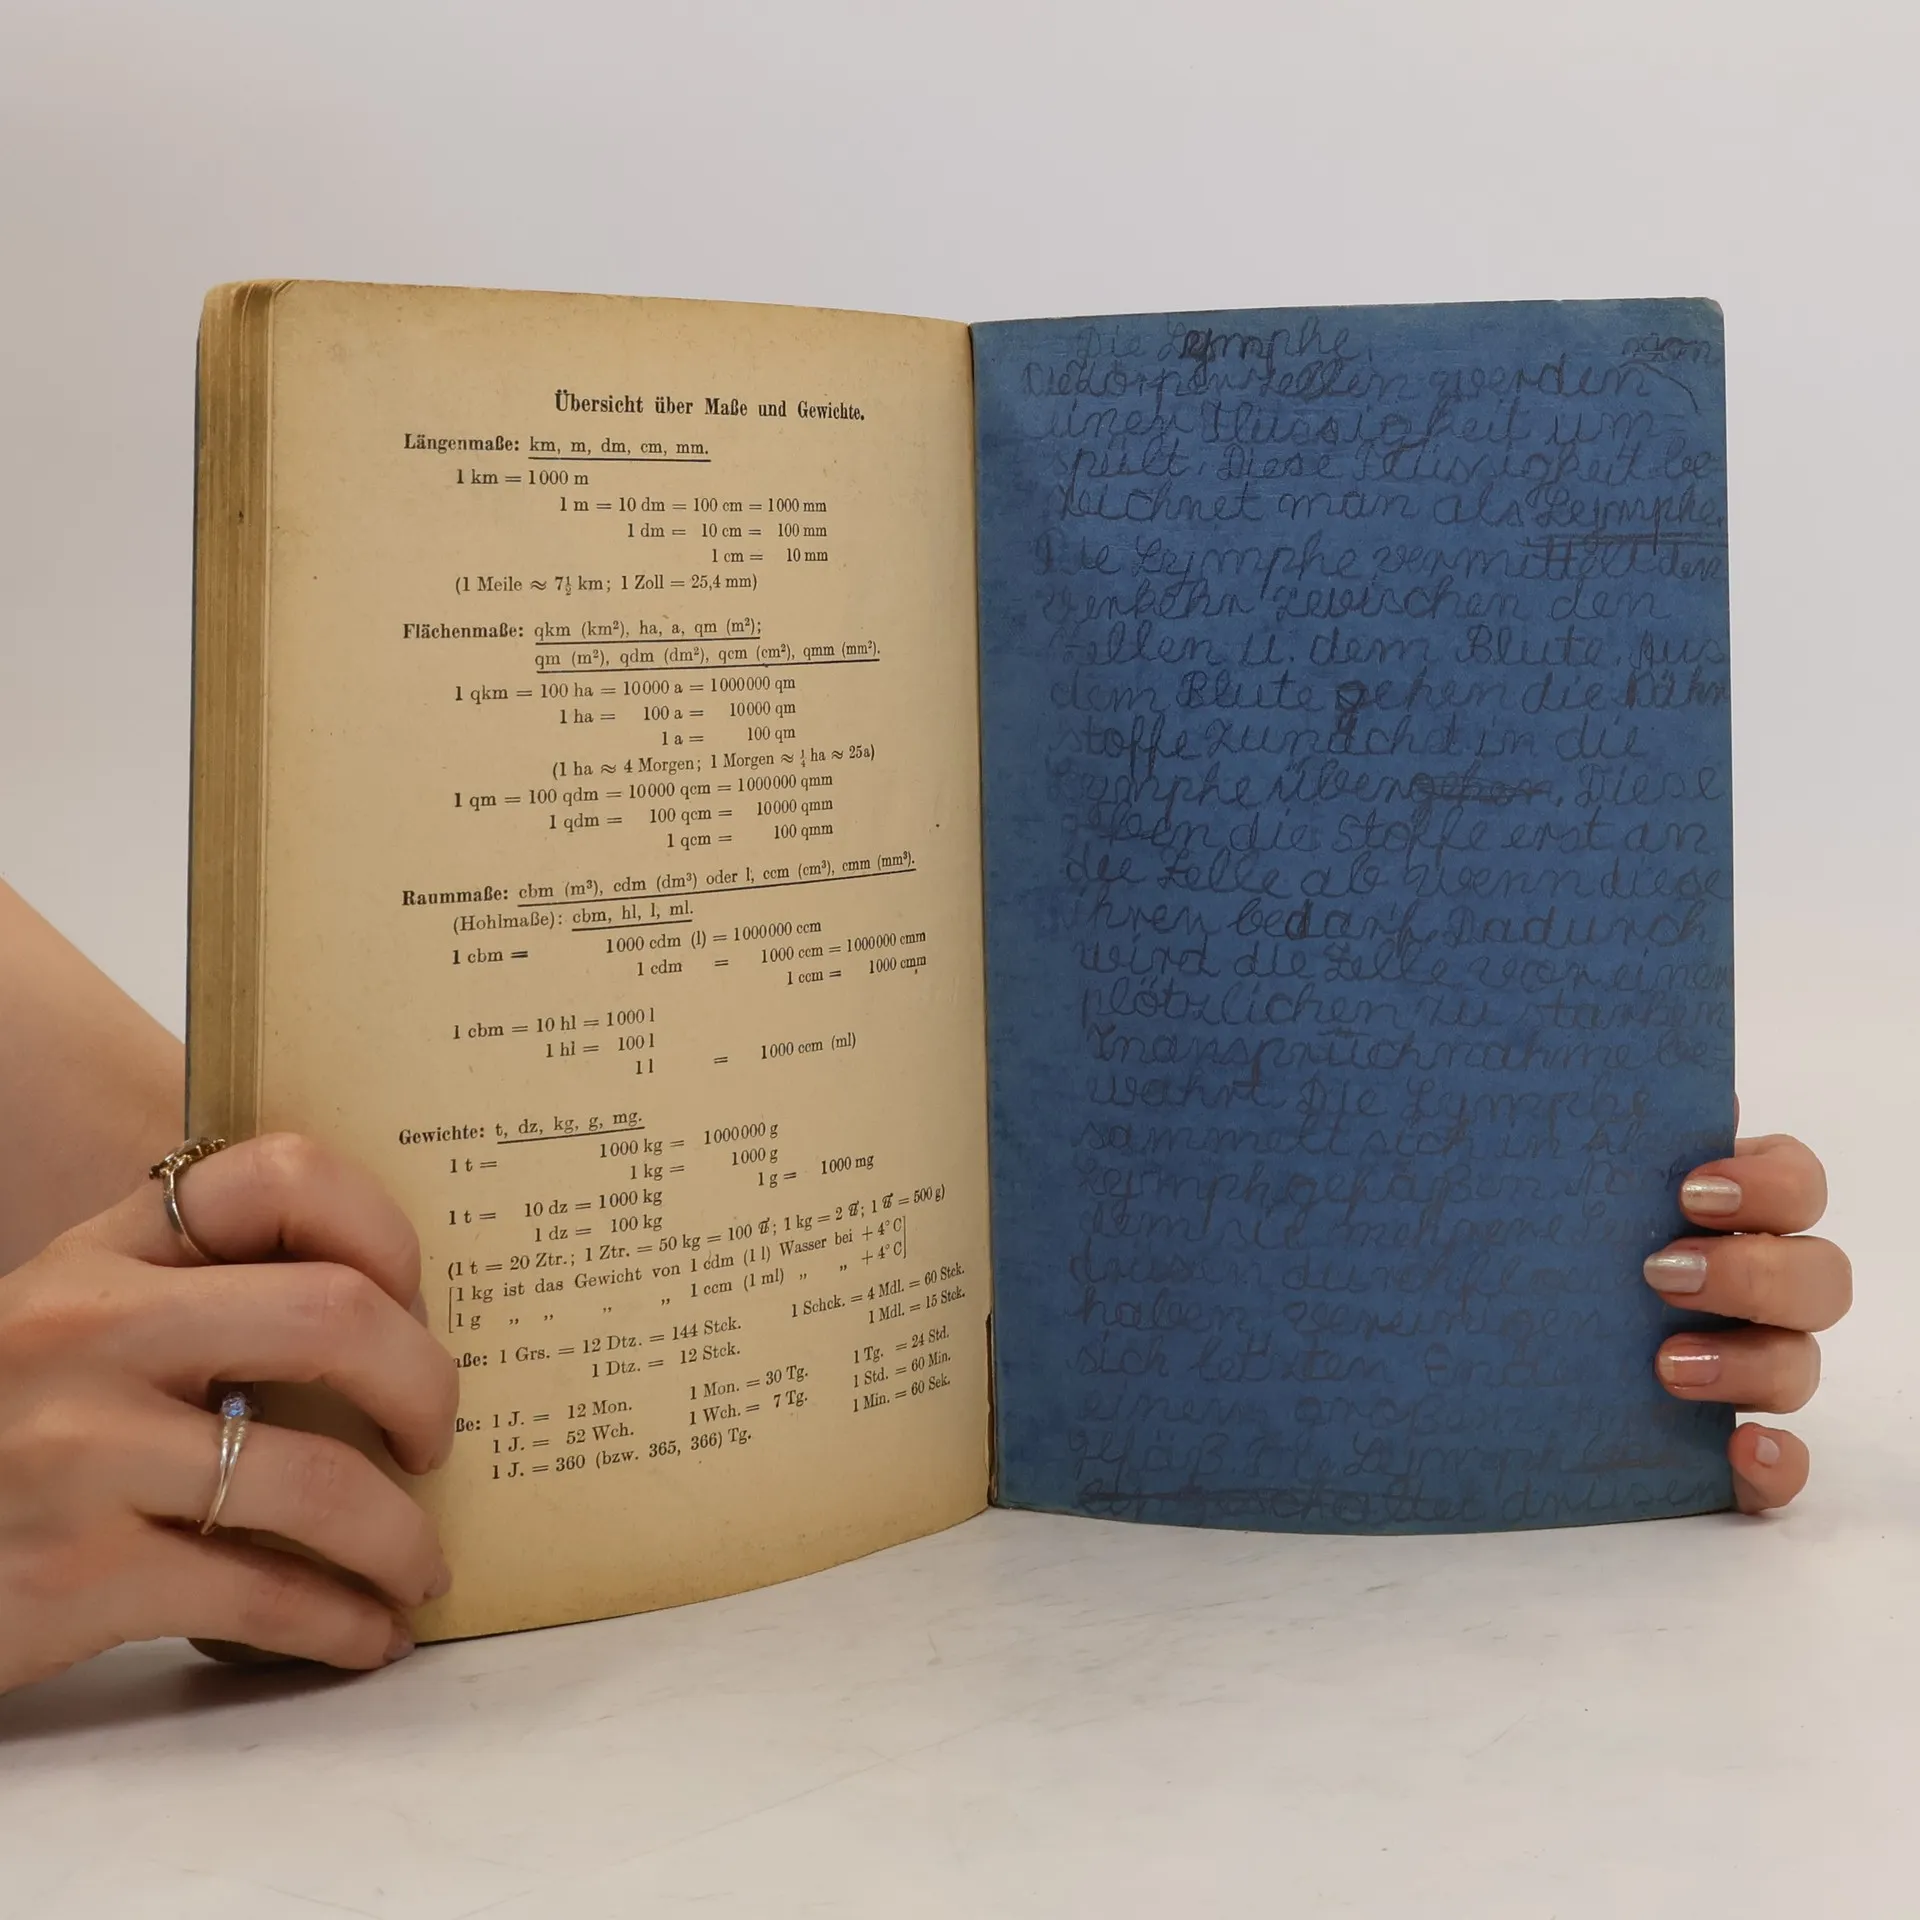 Übersicht über Maße und Gewichte.
Längenmaße: km, m, dm, cm, mm.
1 km = 1000 m
1 m = 10 dm = 100 cm = 1000 mm
1 dm = 10 cm = 100 mm
1 cm = 10 mm
(1 Meile ≈ 7½ km; 1 Zoll = 25,4 mm)
Flächenmaße: qkm (km²), ha, a, qm (m²);
qm (m²), qdm (dm²), qcm (cm²), qmm (mm²).
1 qkm = 100 ha = 10000 a = 1000000 qm
1 ha = 100 a = 10000 qm
1 a = 100 qm
(1 ha ≈ 4 Morgen; 1 Morgen ≈ ¼ ha ≈ 25a)
1 qm = 100 qdm = 10000 qcm = 1000000 qmm
1 qdm = 100 qcm = 10000 qmm
1 qcm = 100 qmm
Raummaße: cbm (m³), cdm (dm³) oder l, ccm (cm³), cmm (mm³).
(Hohlmaße): cbm, hl, l, ml.
1 cbm = 1000 cdm (l) = 1000000 ccm
1 cdm = 1000 ccm = 1000000 cmm
1 ccm = 1000 cmm
1 cbm = 10 hl = 1000 l
1 hl = 100 l
1 l = 1000 ccm (ml)
Gewichte: t, dz, kg, g, mg.
1 t = 1000 kg = 1000000 g
1 kg = 1000 g
1 g = 1000 mg
1 t = 10 dz = 1000 kg
1 dz = 100 kg
(1 t = 20 Ztr.; 1 Ztr. = 50 kg = 100 ℔; 1 kg = 2 ℔; 1 ℔ = 500 g)
[1 kg ist das Gewicht von 1 cdm (1 l) Wasser bei + 4° C]
[1 g „ „ „ „ 1 ccm (1 ml) „ „ + 4° C]
aße: 1 Grs. = 12 Dtz. = 144 Stck. 1 Schck. = 4 Mdl. = 60 Stck.
1 Dtz. = 12 Stck. 1 Mdl. = 15 Stck.
ße: 1 J. = 12 Mon. 1 Mon. = 30 Tg. 1 Tg. = 24 Std.
1 J. = 52 Wch. 1 Wch. = 7 Tg. 1 Std. = 60 Min.
1 J. = 360 (bzw. 365, 366) Tg. 1 Min. = 60 Sek.
Die Lymphe.
werden
einer Flüssigkeit um-
spült. Diese Flüssigkeit be-
zeichnet man als Lymphe.
Die Lymphe vermittelt den
Verkehr zwischen den
Zellen u. dem Blute. Aus
dem Blute gehen die Nähr
stoffe zunächst in die
Lymphe über. Diese
die Stoffe erst an
die Zelle ab wenn diese
ihren bedarf. Dadurch
wird die Zelle vor einer
plötzlichen zu starken
Inanspruchnahme be-
wahrt. Die Lymphe
sammelt sich in
Lymphgefäßen
mehrere
haben vereinigen
sich
einem großen
drüsen